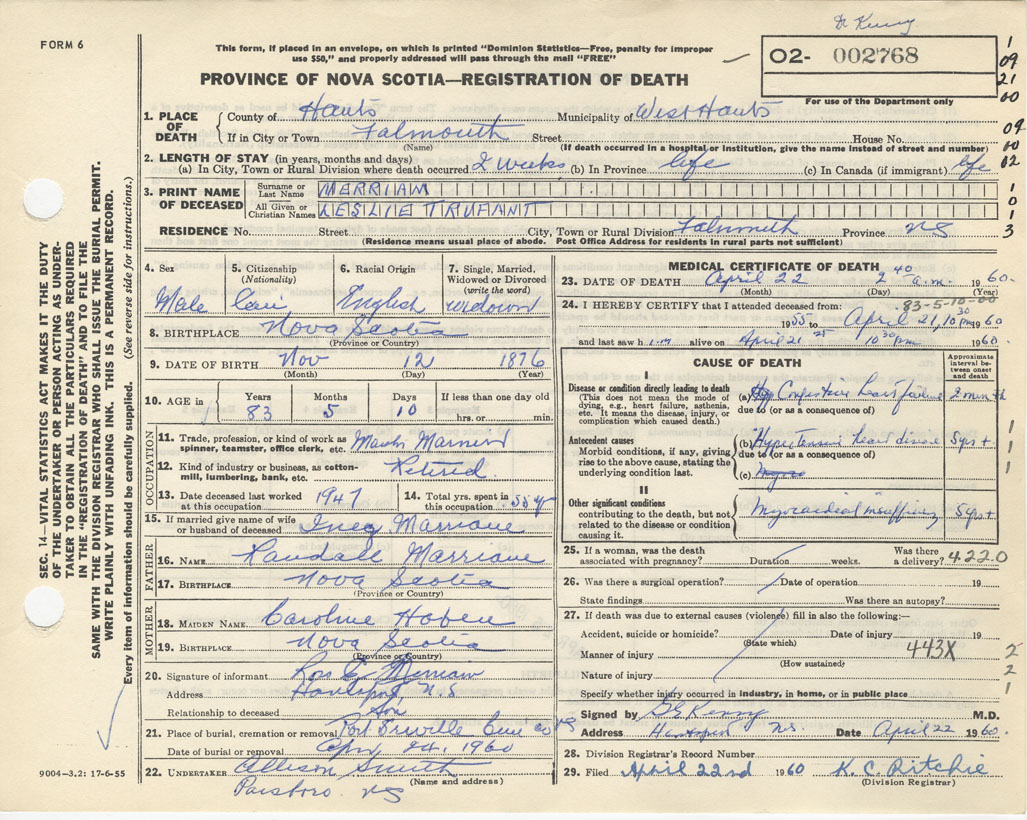 Dr Kenny
FORM 6
This form, if placed in an envelope, on which is printed "Dominion Statistics—Free, penalty for improper
use $50," and properly addressed will pass through the mail "FREE"
PROVINCE OF NOVA SCOTIA—REGISTRATION OF DEATH
O2- 002768
For use of the Department only
1
09
21
00
09
00
02
1
0
1
3
SEC. 14—VITAL STATISTICS ACT MAKES IT THE DUTY
OF THE UNDERTAKER OR PERSON ACTING AS UNDER-
TAKER TO OBTAIN ALL THE PARTICULARS REQUIRED
IN THE "REGISTRATION OF DEATH" AND TO FILE THE
SAME WITH THE DIVISION REGISTRAR WHO SHALL ISSUE THE BURIAL PERMIT.
WRITE PLAINLY WITH UNFADING INK. THIS IS A PERMANENT RECORD.
Every item of information should be carefully supplied. (See reverse side for instructions.)
1. PLACE OF DEATH
County of Hants Municipality of West Hants
If in City or Town Falmouth Street House No.
(Name) (If death occurred in a hospital or institution, give the name instead of street and number)
2. LENGTH OF STAY (in years, months and days)
(a) In City, Town or Rural Division where death occurred 2 weeks (b) In Province life (c) In Canada (if immigrant) life
3. PRINT NAME OF DECEASED
Surname or Last Name MERRIAM
All Given or Christian Names LESLIE TRUFANT
RESIDENCE No. Street City, Town or Rural Division Falmouth Province NS
(Residence means usual place of abode. Post Office Address for residents in rural parts not sufficient)
4. Sex Male
5. Citizenship (Nationality) Can
6. Racial Origin English
7. Single, Married, Widowed or Divorced (write the word)
8. BIRTHPLACE Nova Scotia
(Province or Country)
9. DATE OF BIRTH Nov 12 1876
(Month) (Day) (Year)
10. AGE in Years Months Days If less than one day old
83 5 10 hrs. or min.
OCCUPATION
11. Trade, profession, or kind of work as spinner, teamster, office clerk, etc. Master Mariner
12. Kind of industry or business, as cotton-mill, lumbering, bank, etc. Retired
13. Date deceased last worked at this occupation 1947
14. Total yrs. spent in this occupation 55 y
15. If married give name of wife or husband of deceased Inez
FATHER
16. NAME Randall
17. BIRTHPLACE Nova Scotia
(Province or Country)
MOTHER
18. MAIDEN NAME Caroline
19. BIRTHPLACE Nova Scotia
(Province or Country)
20. Signature of informant Ross E. Merriam
Address Hantsport, N.S
Relationship to deceased Son
21. Place of burial, cremation or removal Port Greville NS
Date of burial or removal Apr 24, 1960
22. UNDERTAKER Allison Smith
(Name and address)
Parsboro. NS
9004—3.2: 17-6-55
MEDICAL CERTIFICATE OF DEATH
23. DATE OF DEATH April 22 2 40 a.m. 1960
(Month) (Day) (Year)
24. I HEREBY CERTIFY that I attended deceased from: 83-5-10-00
1955 to April 21, 10 30 pm 1960
and last saw him alive on April 21 10 30 pm 1960
CAUSE OF DEATH
Approximate interval between onset and death
I
Disease or condition directly leading to death
(This does not mean the mode of dying, e.g., heart failure, asthenia, etc. It means the disease, injury, or complication which caused death.)
(a) Congestive heart failure 2 min +
due to (or as a consequence of)
Antecedent causes
Morbid conditions, if any, giving rise to the above cause, stating the underlying condition last.
(b) Hypertensive heart disease 5 yrs +
due to (or as a consequence of)
(c)
II
Other significant conditions
contributing to the death, but not related to the disease or condition causing it.
Myocardial insufficiency 5 yrs +
1
1
1
25. If a woman, was the death associated with pregnancy? Duration weeks. Was there a delivery? 4220
26. Was there a surgical operation? Date of operation 19
State findings Was there an autopsy?
27. If death was due to external causes (violence) fill in also the following:—
Accident, suicide or homicide? Date of injury 19
(State which)
Manner of injury 443X
(How sustained)
Nature of injury
Specify whether injury occurred in industry, in home, or in public place
2
2
1
Signed by G E Kenny M.D.
Address Hantsport N.S. Date April 22 1960
28. Division Registrar's Record Number
29. Filed April 22nd 1960 K. C. Ritchie
(Division Registrar)